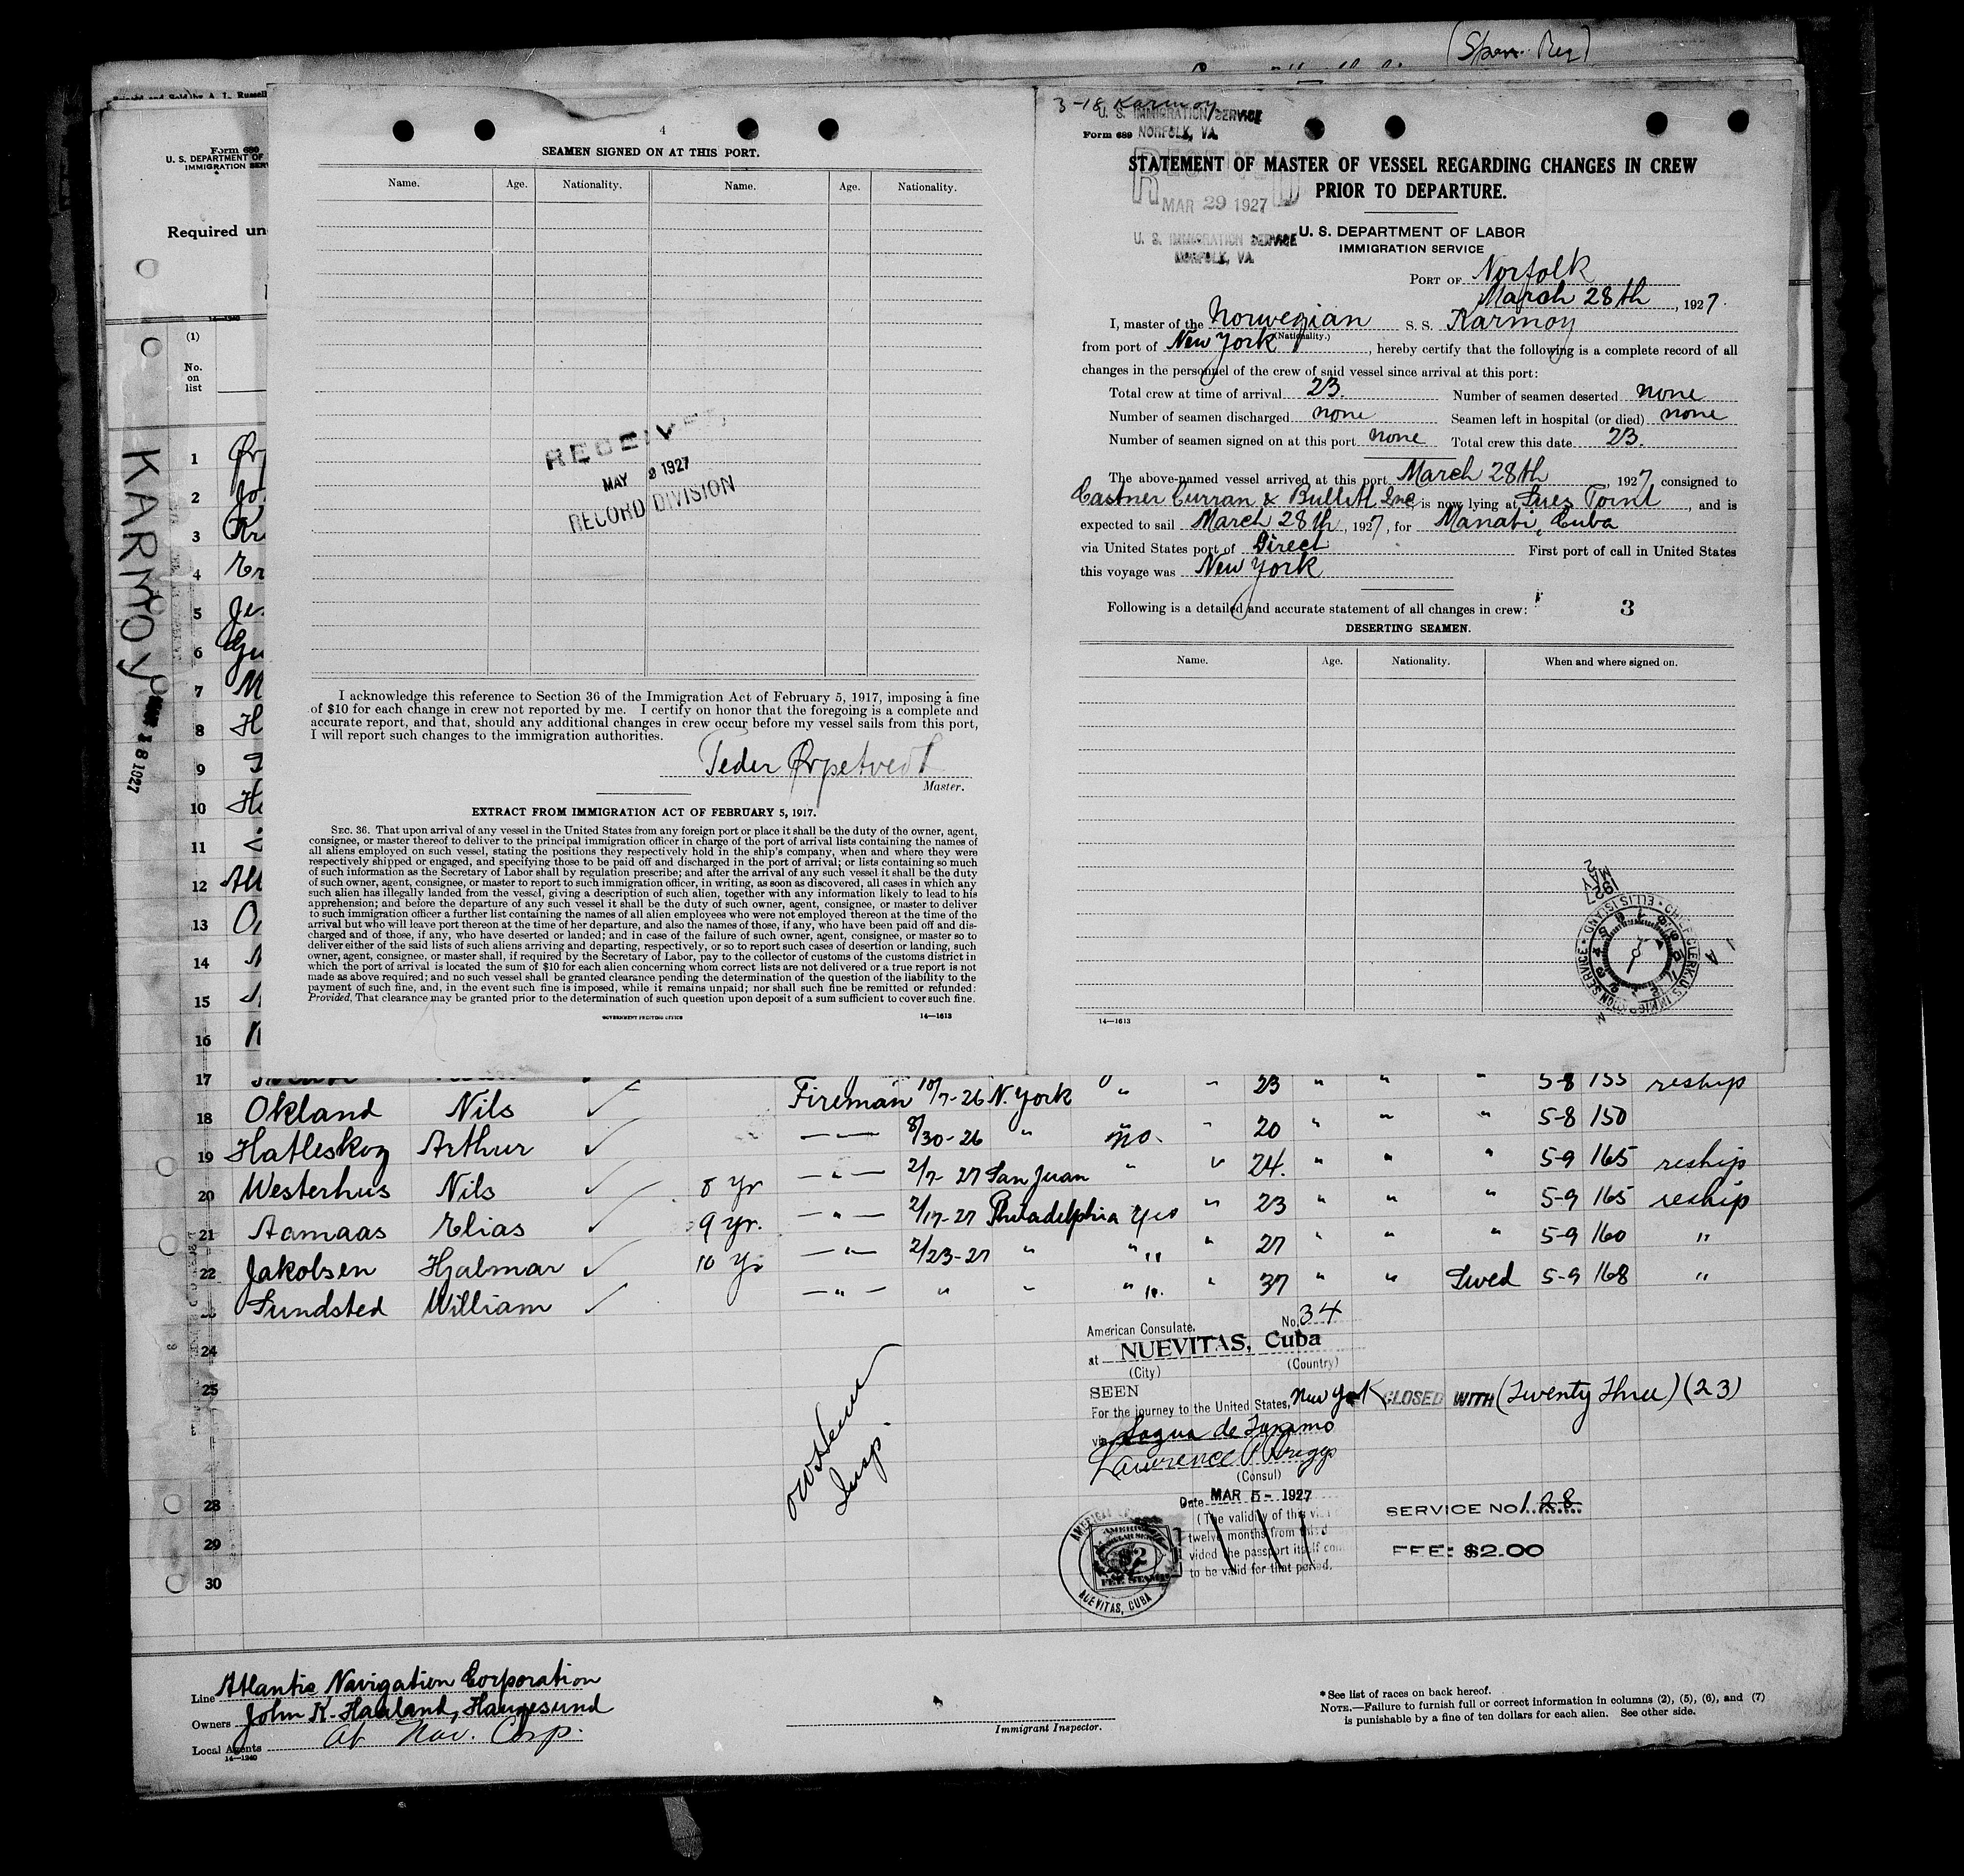 (Span. Reg)
Printed and Sold by A. L. Russell
Form 689
U. S. DEPARTMENT OF
IMMIGRATION SER
Required un
(1)
No.
on
list
KARMOY
MAR 18 1927
1
2 Jo
3 Kr
4 Er
5 Je
6 Gu
7 M
8 H
9
10 He
11
12
13
14
15
16
4
SEAMEN SIGNED ON AT THIS PORT.
Name. Age. Nationality. Name. Age. Nationality.
RECEIVED
MAY 2 1927
RECORD DIVISION
I acknowledge this reference to Section 36 of the Immigration Act of February 5, 1917, imposing a fine
of $10 for each change in crew not reported by me. I certify on honor that the foregoing is a complete and
accurate report, and that, should any additional changes in crew occur before my vessel sails from this port,
I will report such changes to the immigration authorities.
Peder Ørpetvedt
Master.
EXTRACT FROM IMMIGRATION ACT OF FEBRUARY 5, 1917.
SEC. 36. That upon arrival of any vessel in the United States from any foreign port or place it shall be the duty of the owner, agent,
consignee, or master thereof to deliver to the principal immigration officer in charge of the port of arrival lists containing the names of
all aliens employed on such vessel, stating the positions they respectively hold in the ship's company, when and where they were
respectively shipped or engaged, and specifying those to be paid off and discharged in the port of arrival; or lists containing so much
of such information as the Secretary of Labor shall by regulation prescribe; and after the arrival of any such vessel it shall be the duty
of such owner, agent, consignee, or master to report to such immigration officer, in writing, as soon as discovered, all cases in which any
such alien has illegally landed from the vessel, giving a description of such alien, together with any information likely to lead to his
apprehension; and before the departure of any such vessel it shall be the duty of such owner, agent, consignee, or master to deliver
to such immigration officer a further list containing the names of all alien employees who were not employed thereon at the time of the
arrival but who will leave port thereon at the time of her departure, and also the names of those, if any, who have been paid off and dis-
charged and of those, if any, who have deserted or landed; and in case of the failure of such owner, agent, consignee, or master so to
deliver either of the said lists of such aliens arriving and departing, respectively, or so to report such cases of desertion or landing, such
owner, agent, consignee, or master shall, if required by the Secretary of Labor, pay to the collector of customs of the customs district in
which the port of arrival is located the sum of $10 for each alien concerning whom correct lists are not delivered or a true report is not
made as above required; and no such vessel shall be granted clearance pending the determination of the question of the liability to the
payment of such fine, and, in the event such fine is imposed, while it remains unpaid; nor shall such fine be remitted or refunded:
Provided, That clearance may be granted prior to the determination of such question upon deposit of a sum sufficient to cover such fine.
GOVERNMENT PRINTING OFFICE 14—1613
3-18 Karmoy
U. S. IMMIGRATION SERVICE
Form 689 NORFOLK, VA.
STATEMENT OF MASTER OF VESSEL REGARDING CHANGES IN CREW
PRIOR TO DEPARTURE.
RECEIVED
MAR 29 1927
U. S. IMMIGRATION SERVICE
NORFOLK, VA.
U. S. DEPARTMENT OF LABOR
IMMIGRATION SERVICE
PORT OF Norfolk
March 28th, 1927.
I, master of the Norwegian S. S. Karmoy
(Nationality.)
from port of New York, hereby certify that the following is a complete record of all
changes in the personnel of the crew of said vessel since arrival at this port:
Total crew at time of arrival 23. Number of seamen deserted none
Number of seamen discharged none Seamen left in hospital (or died) none
Number of seamen signed on at this port none Total crew this date 23.
The above-named vessel arrived at this port March 28th 1927 consigned to
Castner Curran & Bullitt Inc, is now lying at Sues Point, and is
expected to sail March 28th, 1927, for Manati, Cuba
via United States port of Direct First port of call in United States
this voyage was New York
Following is a detailed and accurate statement of all changes in crew: 3
DESERTING SEAMEN.
Name. Age. Nationality. When and where signed on.
MAY 2 1927
CHIEF CLERK, U.S. IMMIGRATION SERVICE • ELLIS ISLAND
14—1613
17 23 " " " 5-8 155 reship
18 Okland Nils Fireman 10/7-26 N. York " " 20 " " " 5-8 150
19 Hatleskog Arthur —"— 8/30-26 " no. " 24. " " " 5-9 165 reship
20 Westerhus Nils 8 yr —"— 2/7-27 San Juan " " 23 " " " 5-9 165 reship
21 Aamaas Elias 9 yr. —"— 2/17-27 Philadelphia yes " 27 " " " 5-9 160 "
22 Jakobsen Hjalmar 10 yr —"— 2/23-27 " " " 37 " " Swed 5-9 168 "
23 Sundsted William —"— " " " "
24
25
28
29
30
Insp.
American Consulate. No. 34
at NUEVITAS, Cuba
(City) (Country)
SEEN
For the journey to the United States, New York CLOSED WITH (Twenty Three) (23)
via Sagua de Tanamo
Lawrence P Briggs
(Consul)
Date MAR 5- 1927
(The validity of this
twelve months from
vided the passport itself
to be valid for that period.
AMERICAN
CONSULAR SERVICE
$2
FEE STAMP
NUEVITAS, CUBA
SERVICE NO. 128
FEE: $2.00
Line Atlantic Navigation Corporation
Owners John K. Haaland, Haugesund
Local Agents At Nav. Corp.
14—1240
Immigrant Inspector.
* See list of races on back hereof.
NOTE.—Failure to furnish full or correct information in columns (2), (5), (6), and (7)
is punishable by a fine of ten dollars for each alien. See other side.